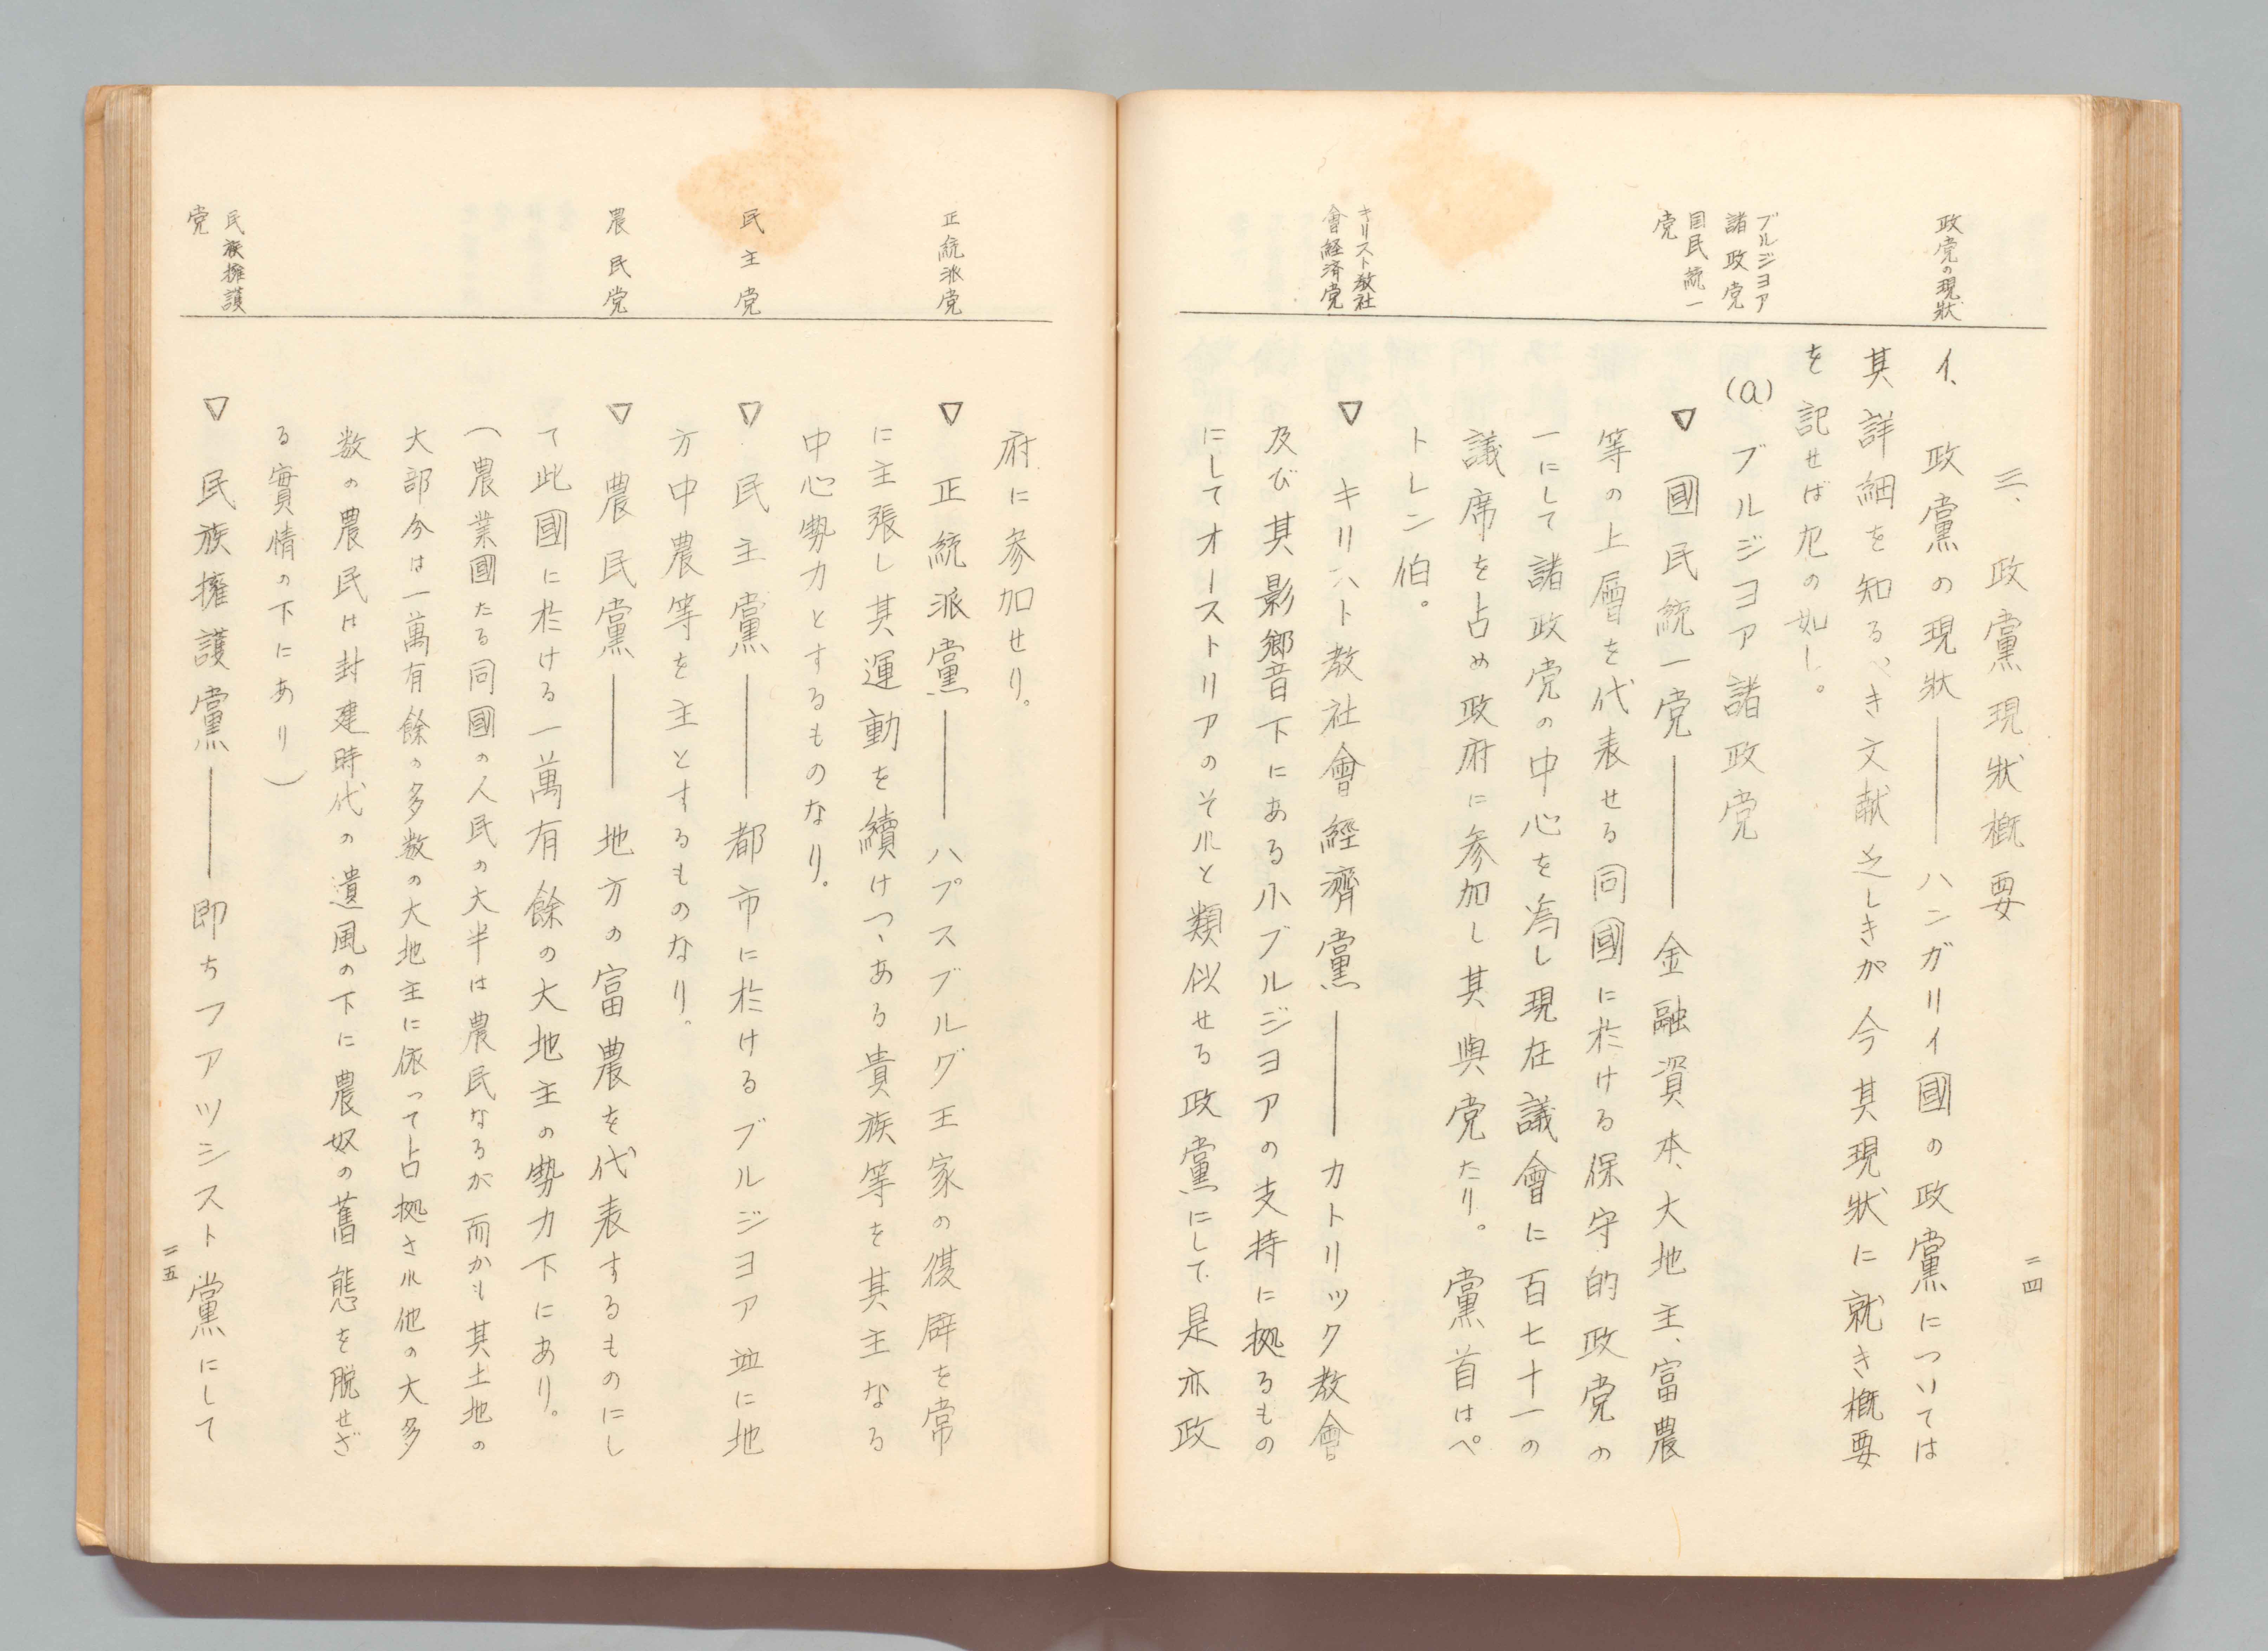 二四
政党の現狀
ブルジヨア
諸政党
国民統一
党
キリスト教社
會経済党
三、政黨現狀概要
イ、政黨の現狀――ハンガリイ國の政黨については
其詳細を知るべき文献乏しきが今其現狀に就き概要
を記せば左の如し。
(a)ブルジヨア諸政党
▽國民統一党――金融資本、大地主、富農
等の上層を代表せる同國に於ける保守的政党の
一にして諸政党の中心を為し現在議會に百七十一の
議席を占め政府に参加し其與党たり。黨首はペ
トレン伯。
▽キリスト教社會經濟黨――カトリック教會
及び其影響下にある小ブルジヨアの支持に拠るもの
にしてオーストリアのそれと類似せる政黨にして是亦政
正統派党
民主党
農民党
民族擁護
党
府に参加せり。
▽正統派黨――ハプスブルグ王家の復辟を常
に主張し其運動を續けつゝある貴族等を其主なる
中心勢力とするものなり。
▽民主黨――都市に於けるブルジヨア並に地
方中農等を主とするものなり。
▽農民黨――地方の富農を代表するものにし
て此國に於ける一萬有餘の大地主の勢力下にあり。
(農業國たる同國の人民の大半は農民なるが而かも其土地の
大部分は一萬有餘の多数の大地主に依って占拠され他の大多
数の農民は封建時代の遺風の下に農奴の舊態を脱せざ
る實情の下にあり)
▽民族擁護黨――即ちファツシスト黨にして
二五